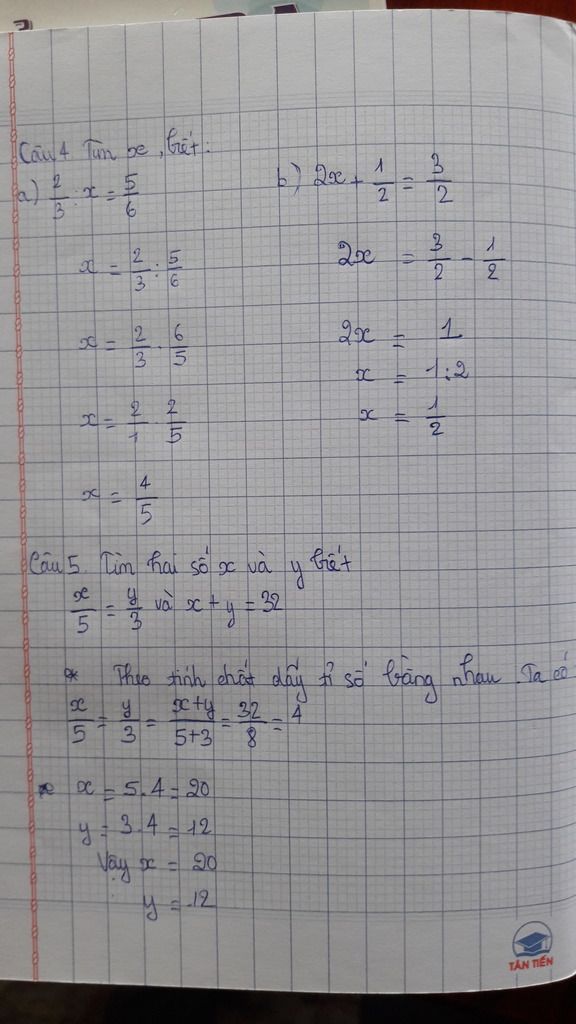 Câu 4 Tìm x, biết:
a) 2/3 : x = 5/6
x = 2/3 : 5/6
x = 2/3 . 6/5
x = 2/1 . 2/5
x = 4/5
b) 2x + 1/2 = 3/2
2x = 3/2 - 1/2
2x = 1
x = 1:2
x = 1/2
Câu 5. Tìm hai số x và y biết
x/5 = y/3 và x + y = 32
* Theo tính chất dãy tỉ số bằng nhau. Ta có
x/5 = y/3 = x+y/5+3 = 32/8 = 4
* x = 5.4 = 20
y = 3.4 = 12
Vậy x = 20
y = 12
TÂN TIẾN